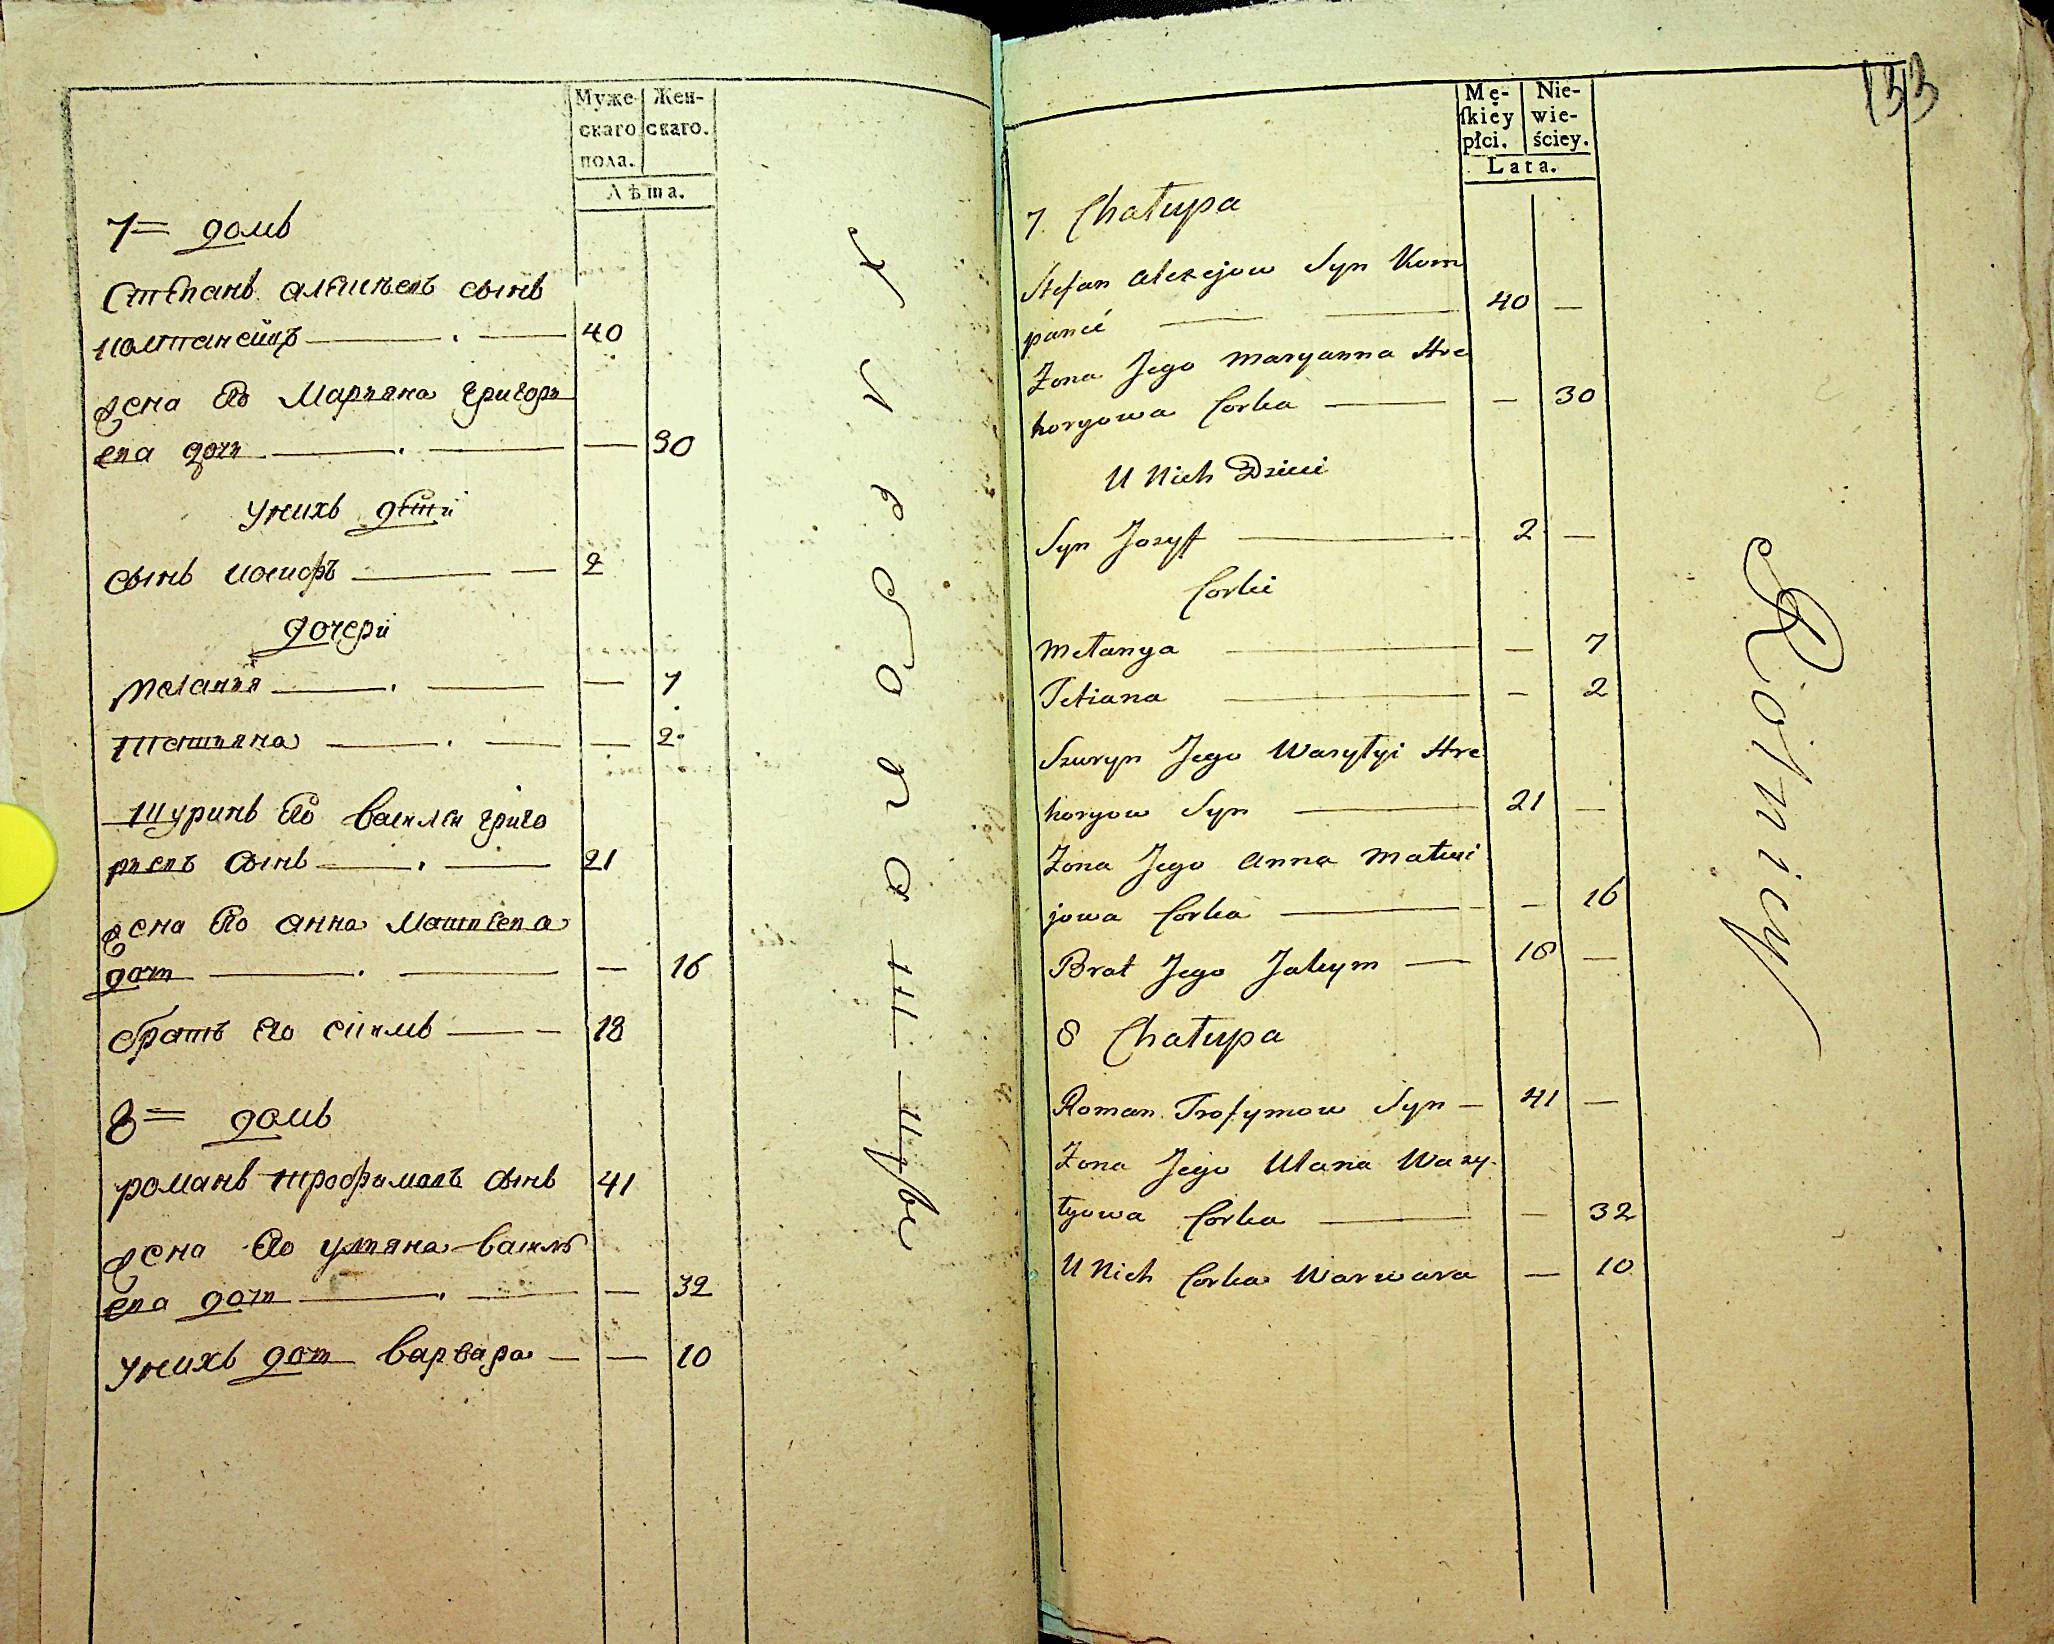 Муже-
скаго
пола.
Жен-
скаго.
Лѣта.
7= домъ
Степанъ алексѣевъ сынъ
компанейцъ 40
жена его Марьяна григорь
ева дочь — 30
у нихъ дети
сынъ иосифъ 2
дочери
Меланья — 7
Татьяна — 2
Шуринъ его василей григо
рьевъ сынъ 21
жена его анна Матвеева
дочь — 16
братъ его екимъ 18
8= домъ
романъ трофимовъ сынъ 41
жена его ульяна василь
ева дочь — 32
у нихъ дочь варвара — 10
133
Mę-
ſkiey
płci.
Nie-
wie-
ściey.
Lata.
7. Chałupa
Stefan Alexejow Syn Kom
paniec 40 —
Żona Jego Maryanna Hre
horyowa Corka — 30
U Nich Dzieci
Syn Jozyf 2 —
Corki
Mełanya — 7
Tetiana — 2
Szuryn Jego Wasyłyi Hre
horyow Syn 21 —
Żona Jego Anna Matwi
jowa Corka — 16
Brat Jego Jakym 18 —
8 Chałupa
Roman Trofymow Syn 41 —
Żona Jego Ulana Wasy-
łyowa Corka — 32
U Nich Corka Warwara — 10
Rolnicy